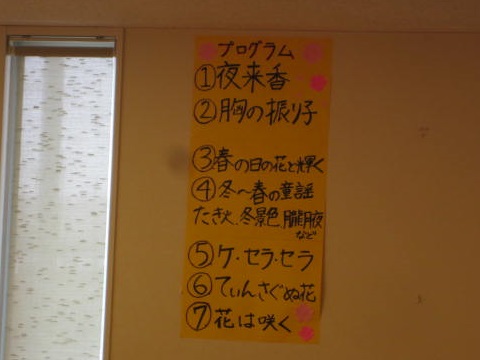 プログラム
①夜来香
②胸の振り子
③春の日の花と輝く
④冬〜春の童謡
たき火、冬景色、朧月夜
など
⑤ケ・セラ・セラ
⑥てぃんさぐぬ花
⑦花は咲く